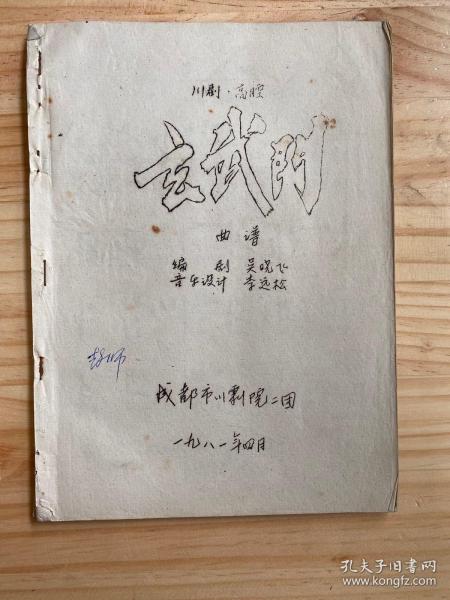 川剧·高腔
玄武门
曲谱
编剧 吴晓飞
音乐设计 李远松
成都市川剧院二团
一九八一年四月
孔夫子旧书网
www.kongfz.com